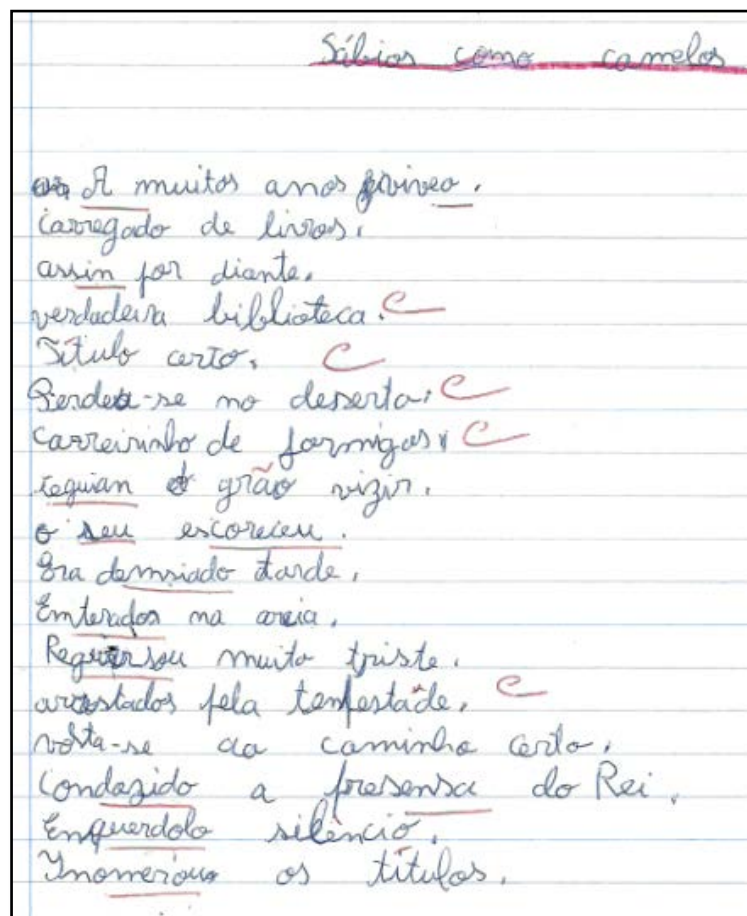 Sábios como camelos
A muitos anos viveo.
Carregado de livros.
assin por diante.
verdadeira biblioteca. C
Título certo. C
Perdeu-se no deserto. C
Carreirinho de formigas C
seguian o grão vizir.
o seu escoreceu.
Era demsiado tarde.
Emterados na areia.
muito triste.
arrastados pela tempestade. C
volta-se ao caminho certo.
Condazido a presensa do Rei.
Enquerdolo silêncio.
Inomeriou os títulos.